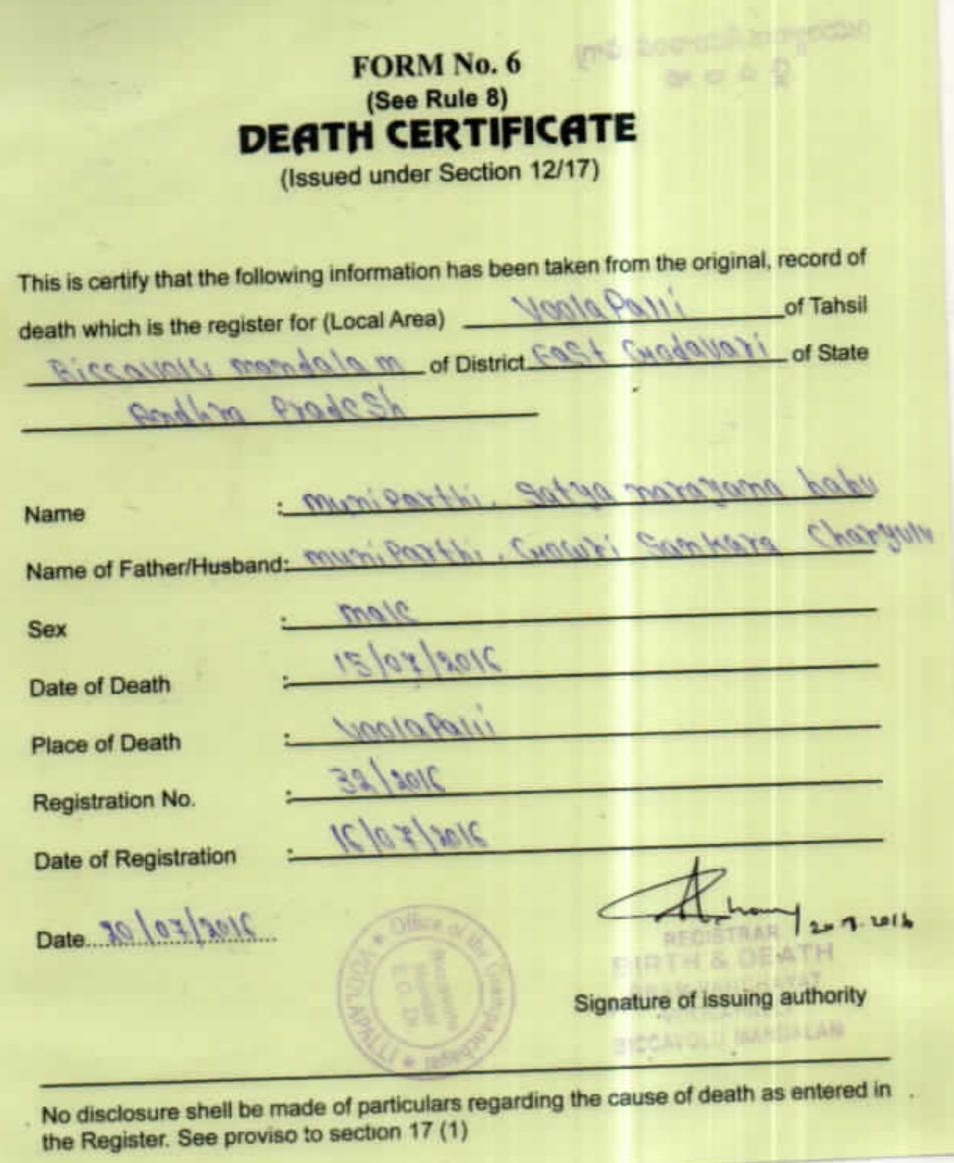 FORM No. 6
(See Rule 8)
DEATH CERTIFICATE
(Issued under Section 12/17)
This is certify that the following information has been taken from the original, record of
death which is the register for (Local Area) VoolaPalli of Tahsil
Biccavolu mandalam of District East Godavari of State
Andhra Pradesh
Name : muniParthi. Satya narayana babu
Name of Father/Husband: muniParthi. Gowri Sankara Charyulu
Sex : male
Date of Death : 15/07/2016
Place of Death : VoolaPalli
Registration No. : 32/2016
Date of Registration : 16/07/2016
Date 20/07/2016
20.7.2016
Office of the Grampanchayat
VOOLAPALLI
E.G. Dt
REGISTRAR
BIRTH & DEATH
BICCAVOLU MANDALAM
Signature of issuing authority
No disclosure shell be made of particulars regarding the cause of death as entered in
the Register. See proviso to section 17 (1)